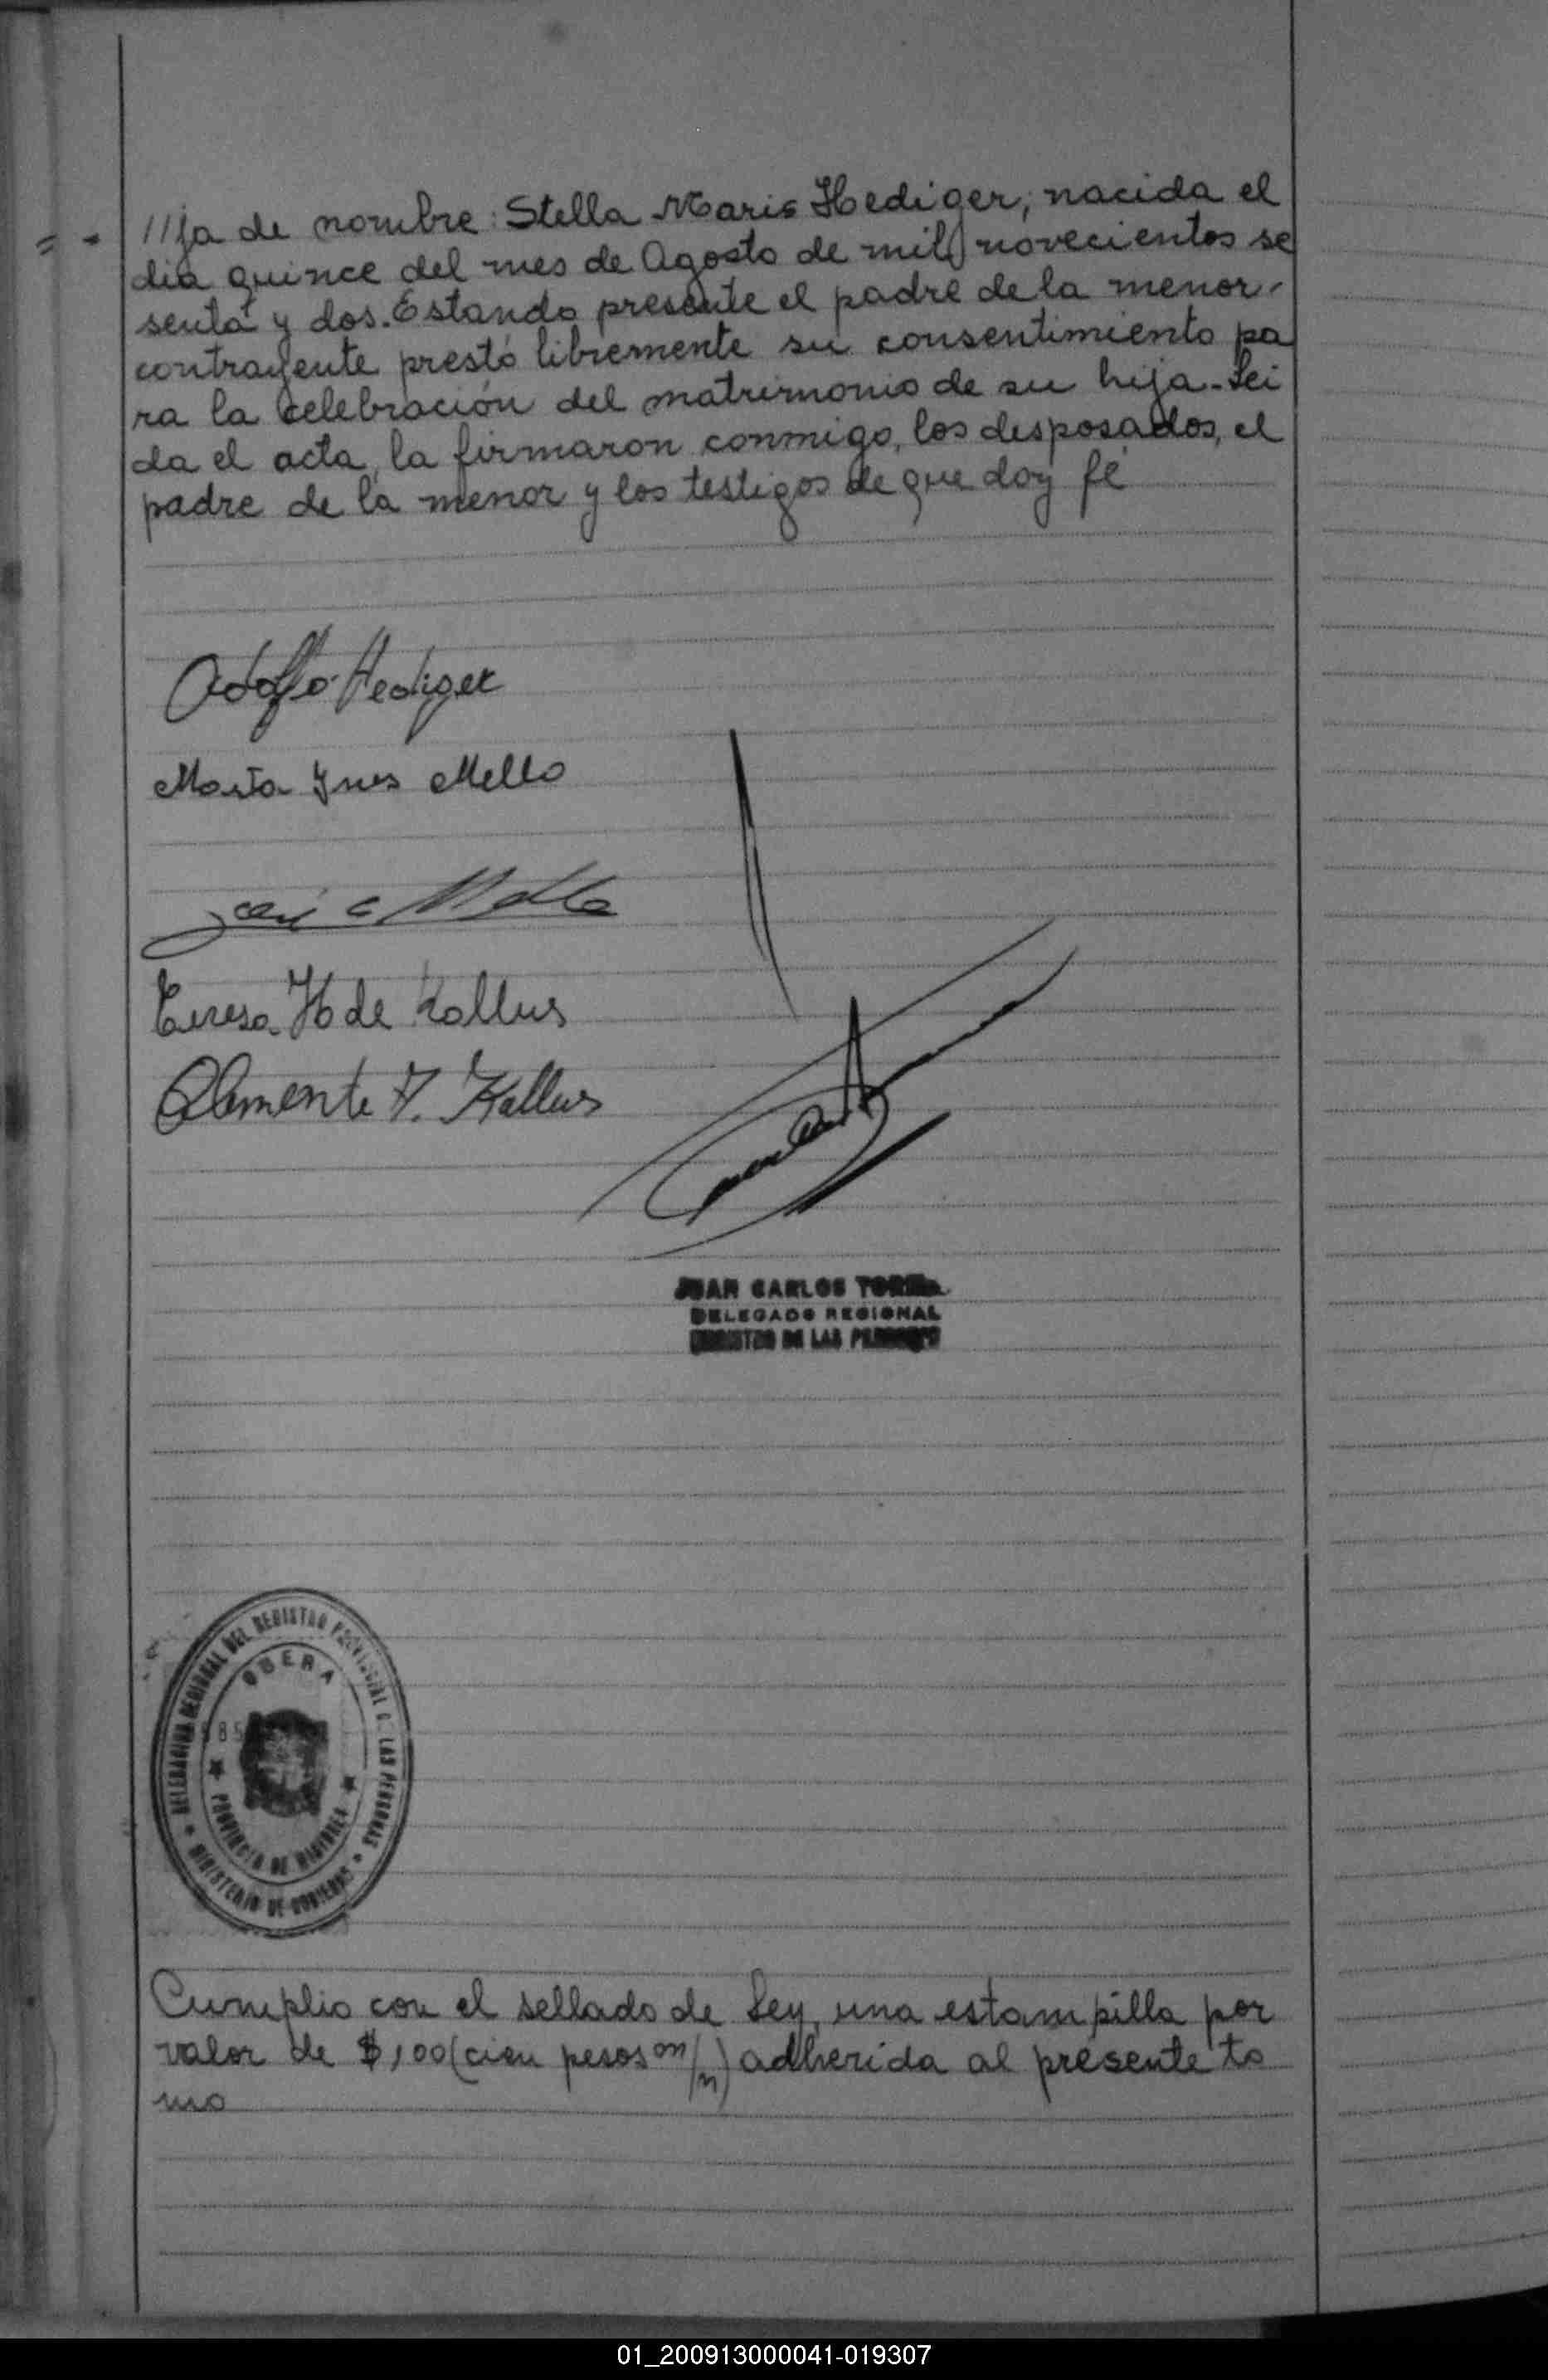 //ja de nombre: Stella Maris Hediger; nacida el
dia quince del mes de Agosto de mil novecientos se
senta y dos. Estando presente el padre de la menor
contrayente prestó libremente su consentimiento pa
ra la celebración del matrimonio de su hija - Lei
da el acta, la firmaron conmigo, los desposados, el
padre de la menor y los testigos de que doy fé
Adolfo Hediger
Marta Ines Mello
Mello
Teresa H de Kallus
Clemente A. Kallus
JUAN CARLOS
DELEGADO REGIONAL
REGISTRO DE LAS PERSONAS
DELEGACION REGIONAL DEL REGISTRO PROVINCIAL DE LAS PERSONAS
OBERA
PROVINCIA DE MISIONES
MINISTERIO DE GOBIERNO
Cumplio con el sellado de Ley, una estampilla por
valor de $,100 (cien pesos m/n) adherida al presente to
mo
01_200913000041-019307